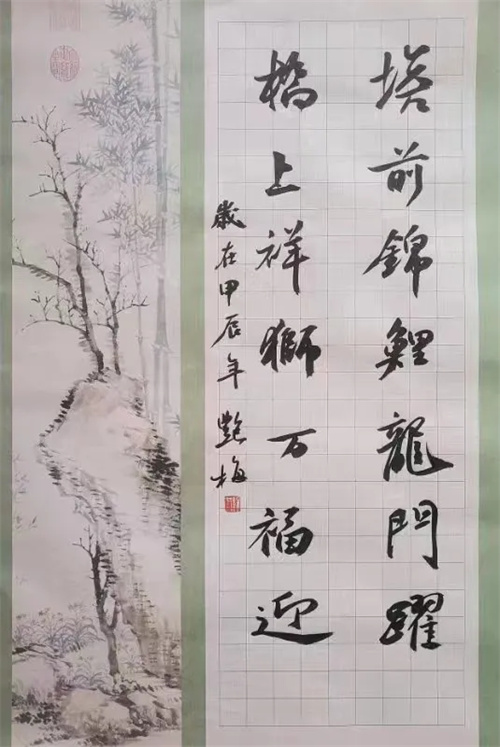 塔前錦鯉龍門躍
橋上祥獅万福迎
歲在甲辰年 艷梅